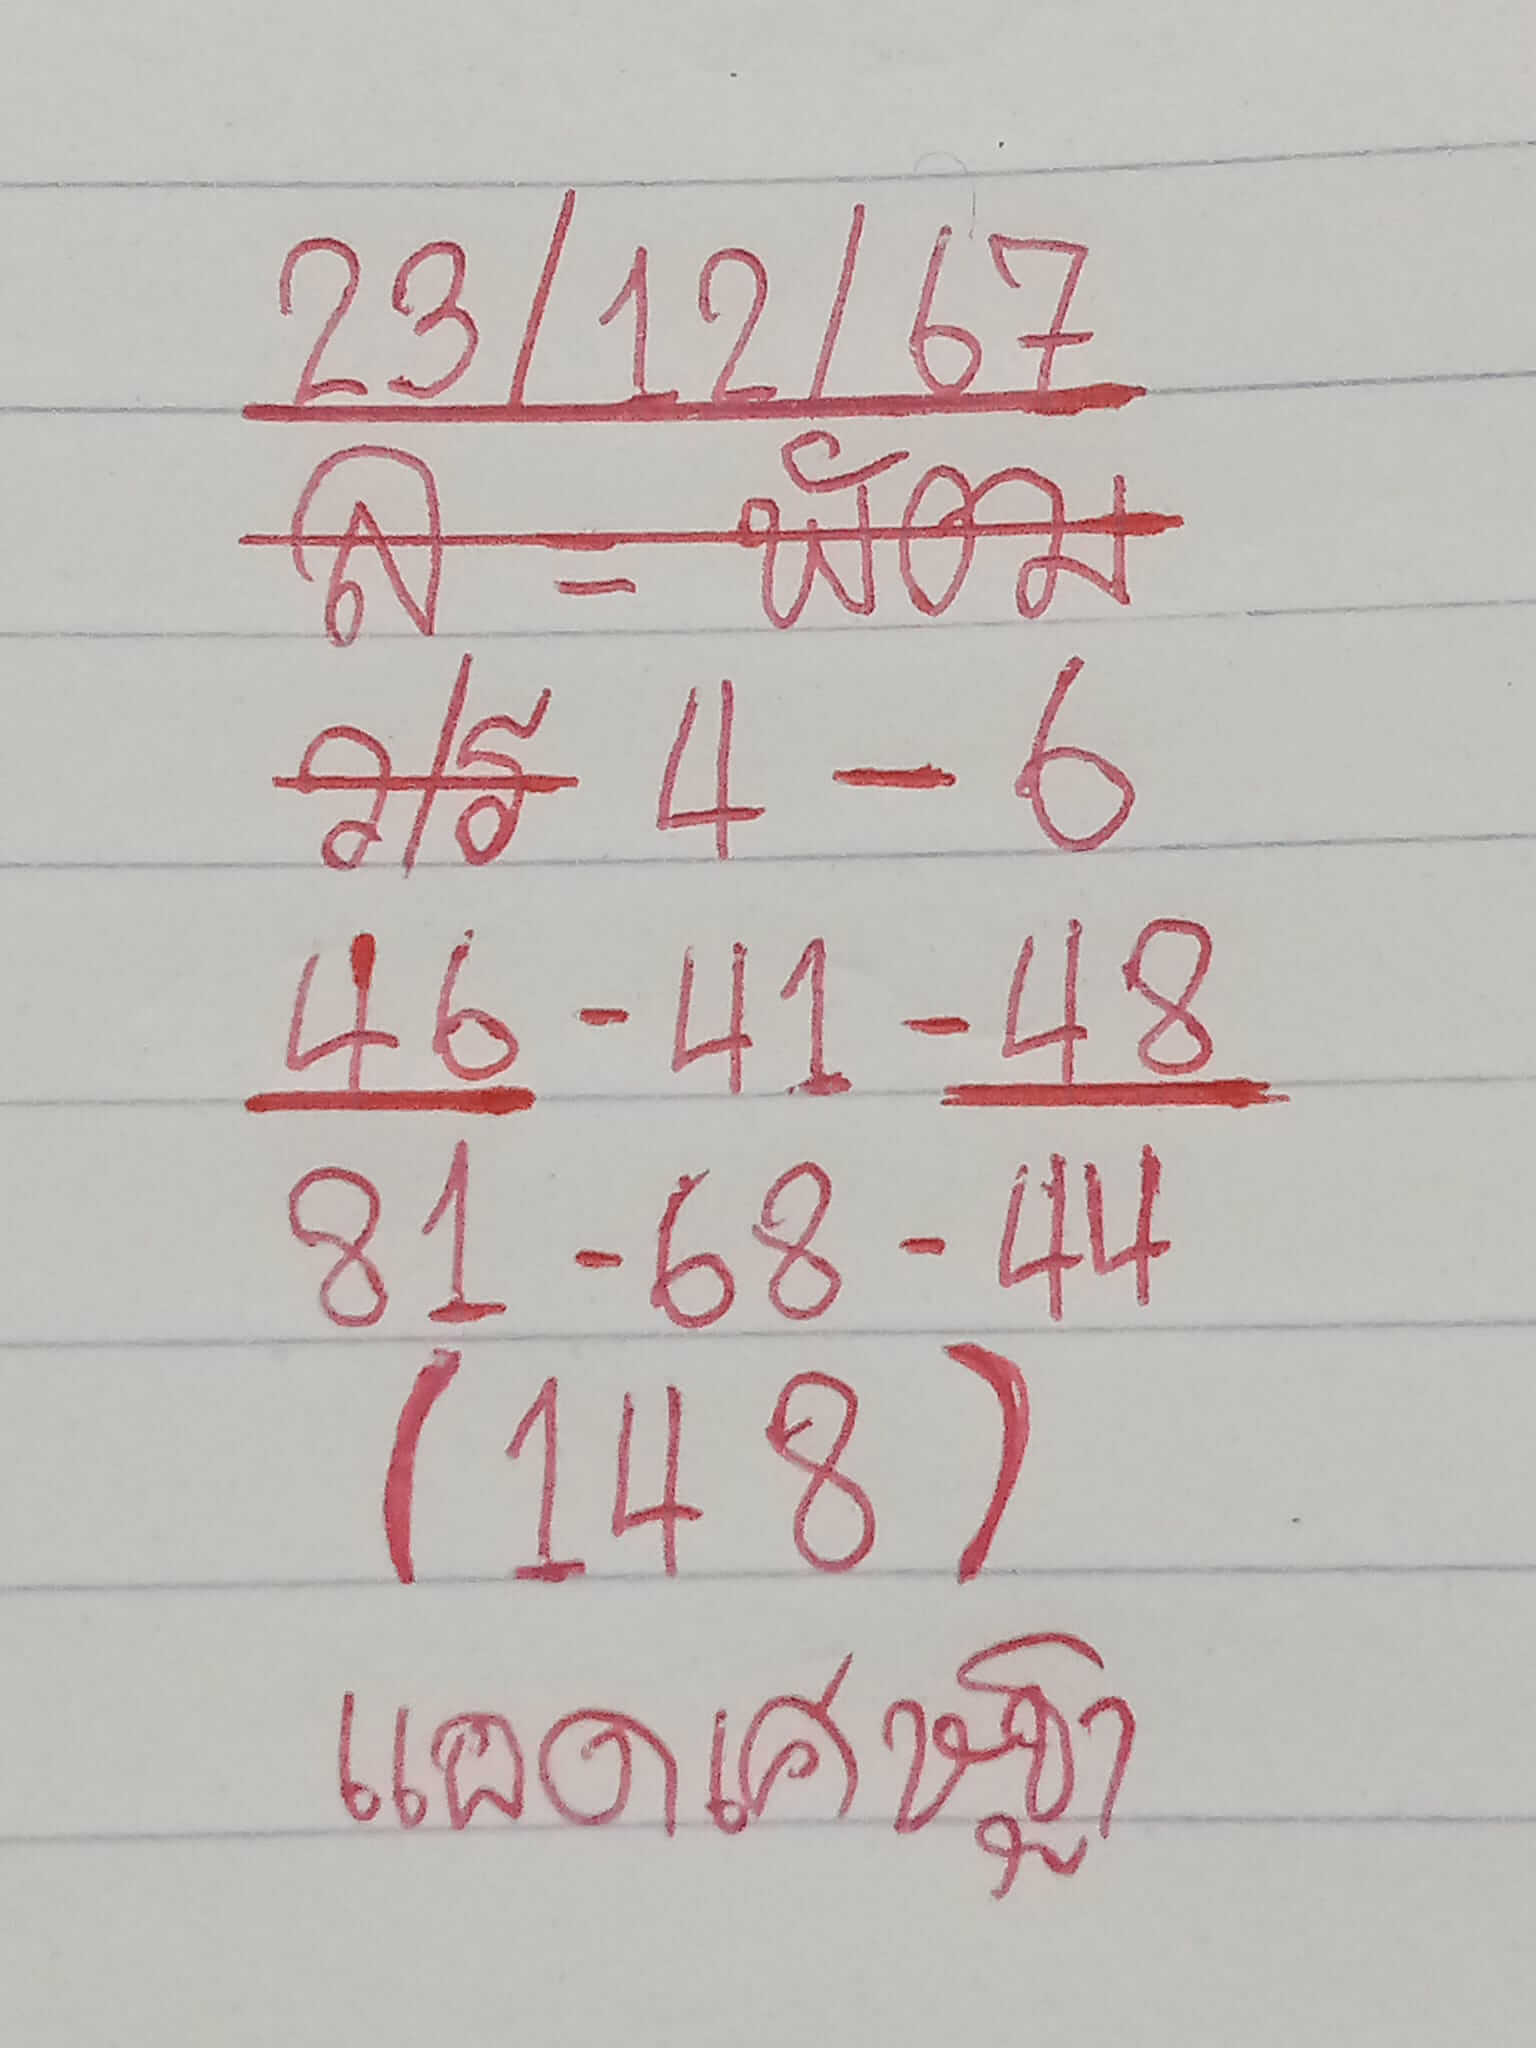 23/12/67
ล = พัฒม
ว/ธ 4 - 6
46 - 41 - 48
81 - 68 - 44
(148)
แอดเศษฐา